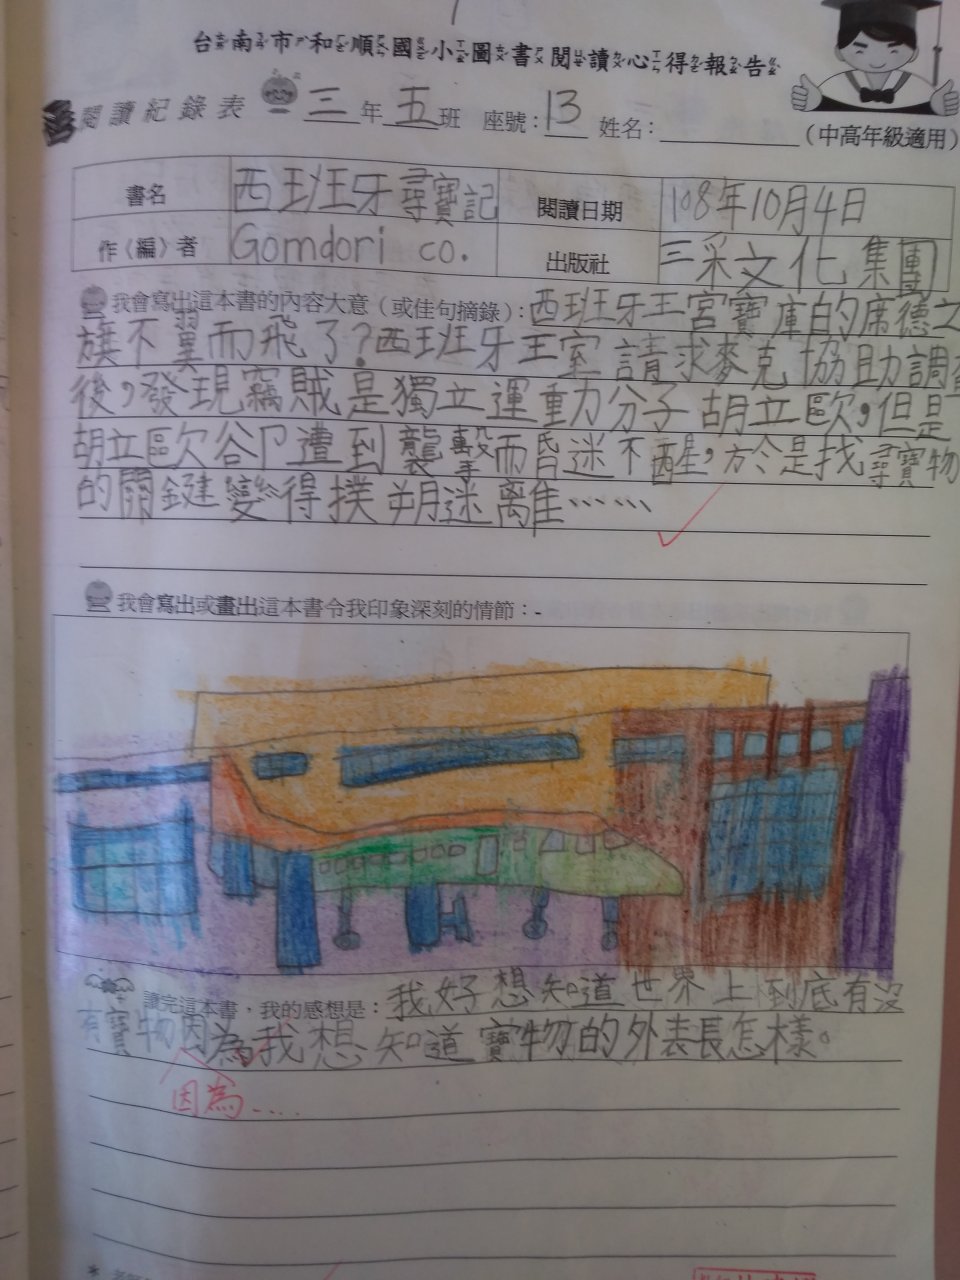 台南市和順國小圖書閱讀心得報告
閱讀紀錄表 三年五班 座號:13 姓名: (中高年級適用)
書名 西班牙尋寶記 閱讀日期 108年10月4日
作〈編〉者 Gomdori co. 出版社 三采文化集團
我會寫出這本書的內容大意（或佳句摘錄）: 西班牙王宮寶庫的席德之
旗不翼而飛了?西班牙王室請求麥克協助調查
後,發現竊賊是獨立運動分子胡立歐,但是
胡立歐卻遭到襲擊而昏迷不醒,於是找尋寶物
的關鍵變得撲朔迷離……
我會寫出或畫出這本書令我印象深刻的情節：
讀完這本書，我的感想是：我好想知道世界上到底有沒
有寶物因為我想知道寶物的外表長怎樣。
因為....